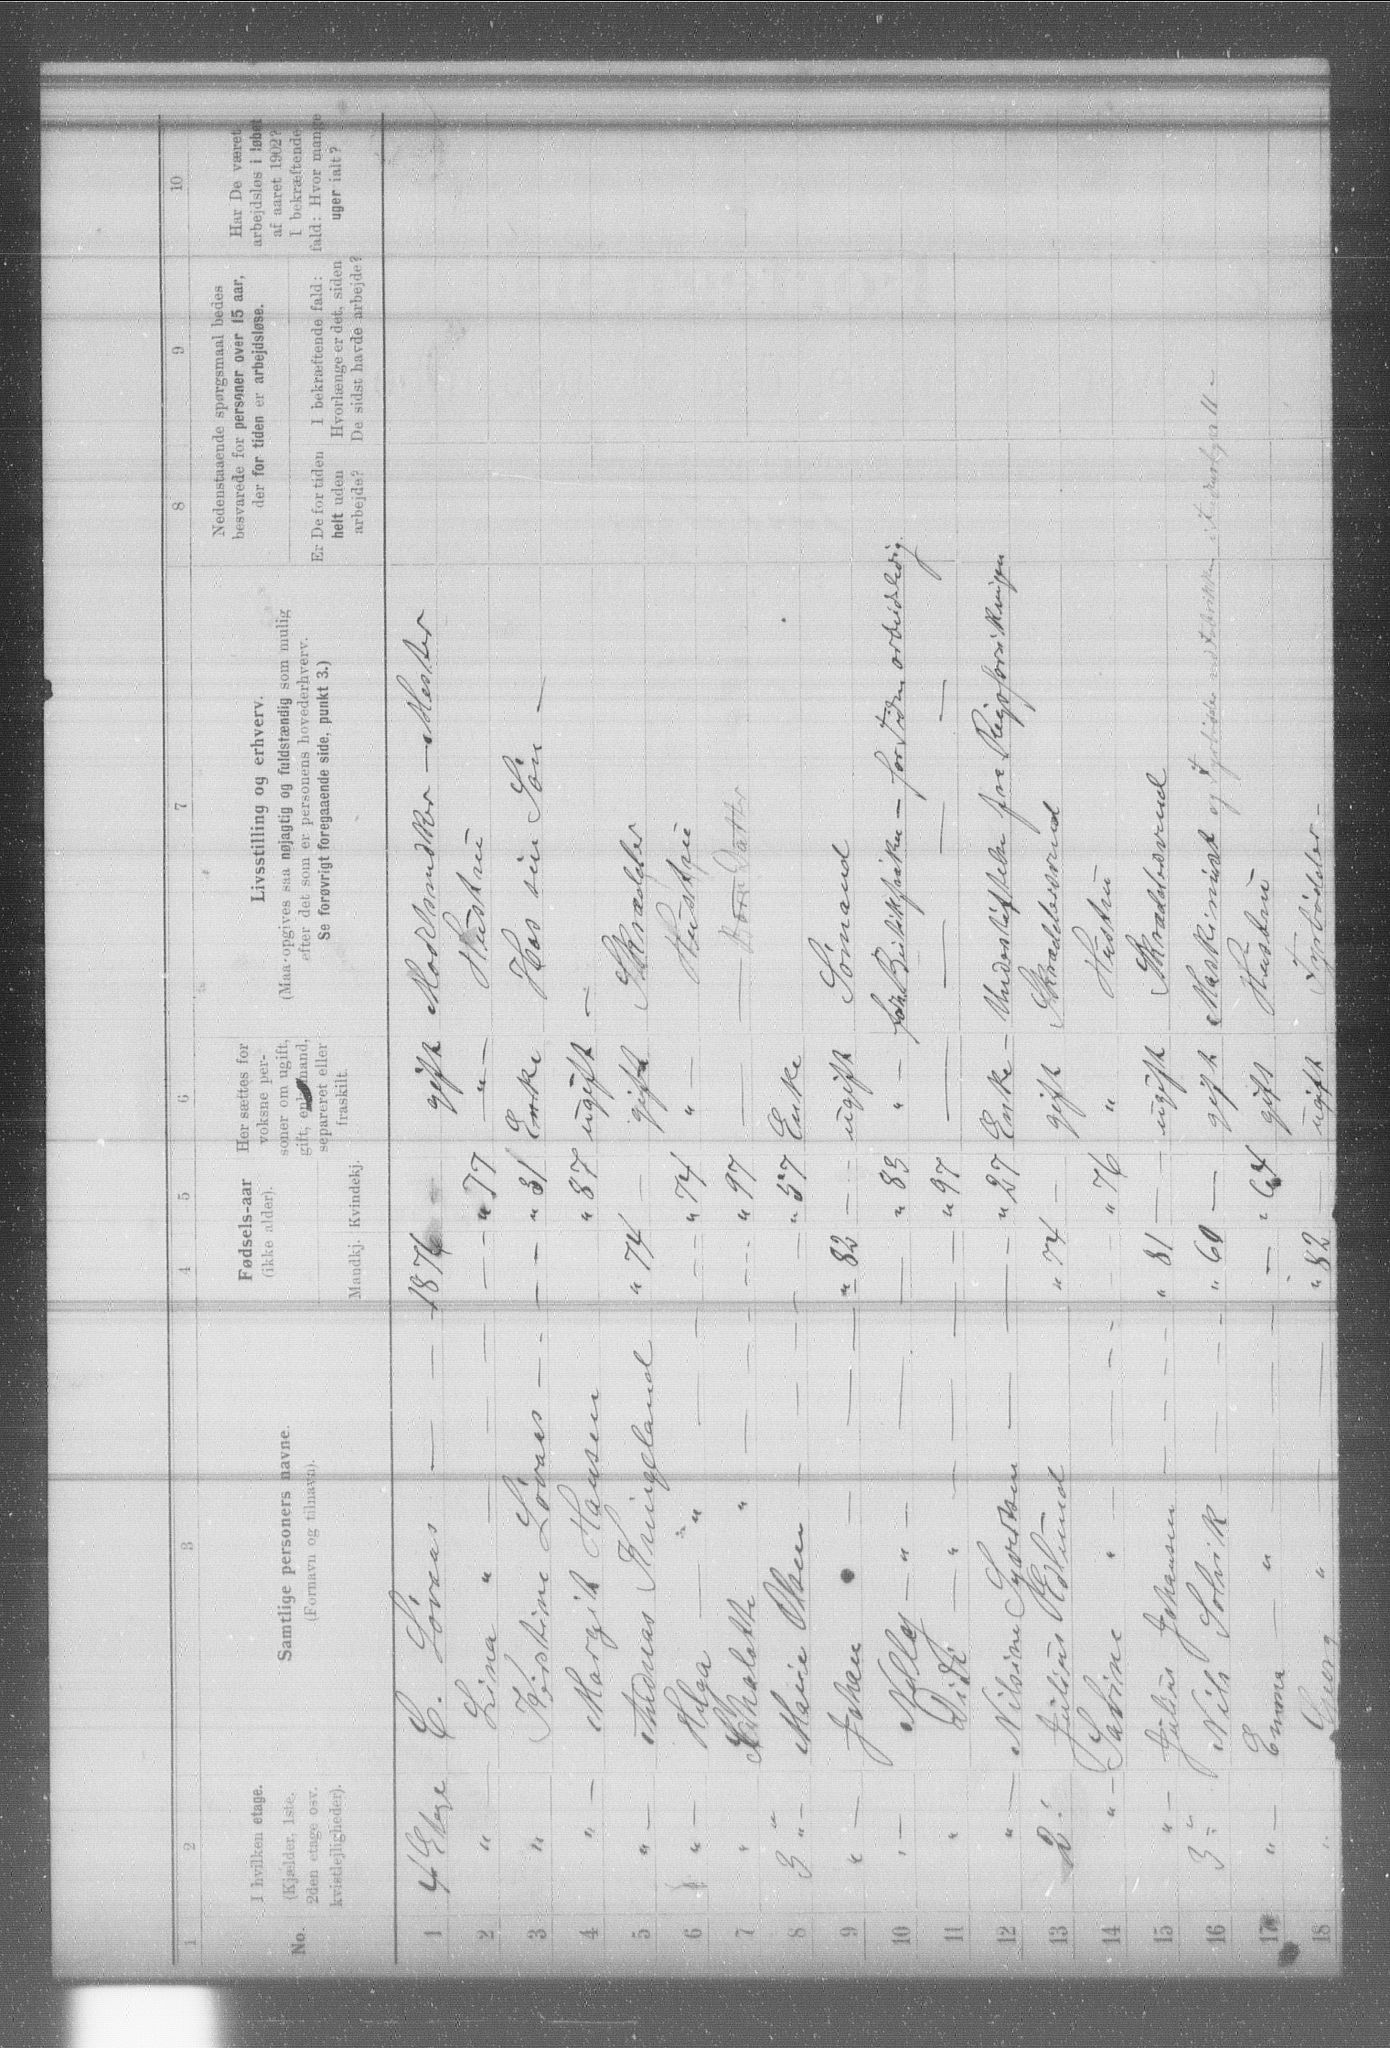 1 2 3 4 5 6 7 8 9 10
No.
I hvilken etage.
(Kjælder, 1ste,
2den etage osv.
kvistlejligheder).
Samtlige personers navne.
(Fornavn og tilnavn).
Fødsels-aar
(ikke alder).
Mandkj. Kvindekj.
Her sættes for
voksne per-
soner om ugift,
gift, enkemand,
separeret eller
fraskilt.
Livsstilling og erhverv.
(Maa opgives saa nøjagtig og fuldstændig som mulig
efter det som er personens hovederhverv.
Se forøvrigt foregaaende side, punkt 3.)
Nedenstaaende spørgsmaal bedes
besvarede for personer over 15 aar,
der for tiden er arbejdsløse.
Er De for tiden
helt uden
arbejde?
I bekræftende fald:
Hvorlænge er det, siden
De sidst havde arbejde?
Har De været
arbejdsløs i løbet
af aaret 1902?
I bekræftende
fald: Hvor mange
uger ialt?
1 4 Etage C. Løvaas — — 1876 gift — Mester
2 " — Lina " — — — " 77 — " — Hustru
3 " Kristine Løvaas — - - - " 31 Enke Hos sin Søn —
4 " — Margit Hansen " 87 ugift —
5 " — Andreas Kringeland " 74 — gift Skrædder
6 " — Helga — " — — — " 74 " — Hustru
7 " " — — — " 97 — — Datter
8 3 " — Marie Olsen — — — — " 57 Enke
9 " — Johan — — — " 82 — — ugift Sømand
10 " — Nelly — " — — — " 83 " — for Tiden arbeidsledig
11 " Didi — " — — — " 97 — — — — —
12 " — Nilsine Syvertsen — — " 27 Enke — Understøttelse fra Rigsforsikringen
13 2 " Julius " 74 — gift Skræddersvend
14 " — Sabine " — - - - " 76 " Hustru
15 " — Julius Johansen — — — " 81 — — ugift Skræddersvend
16 3 " Nils Solvik — — - - " 60 — gift Maskinist og Fyrbøder ved Fabrikken i 11
17 " — Emma — " — — — " 64 gift Hustru
18 " Georg " — — " 82 — ugift Fyrbøder —